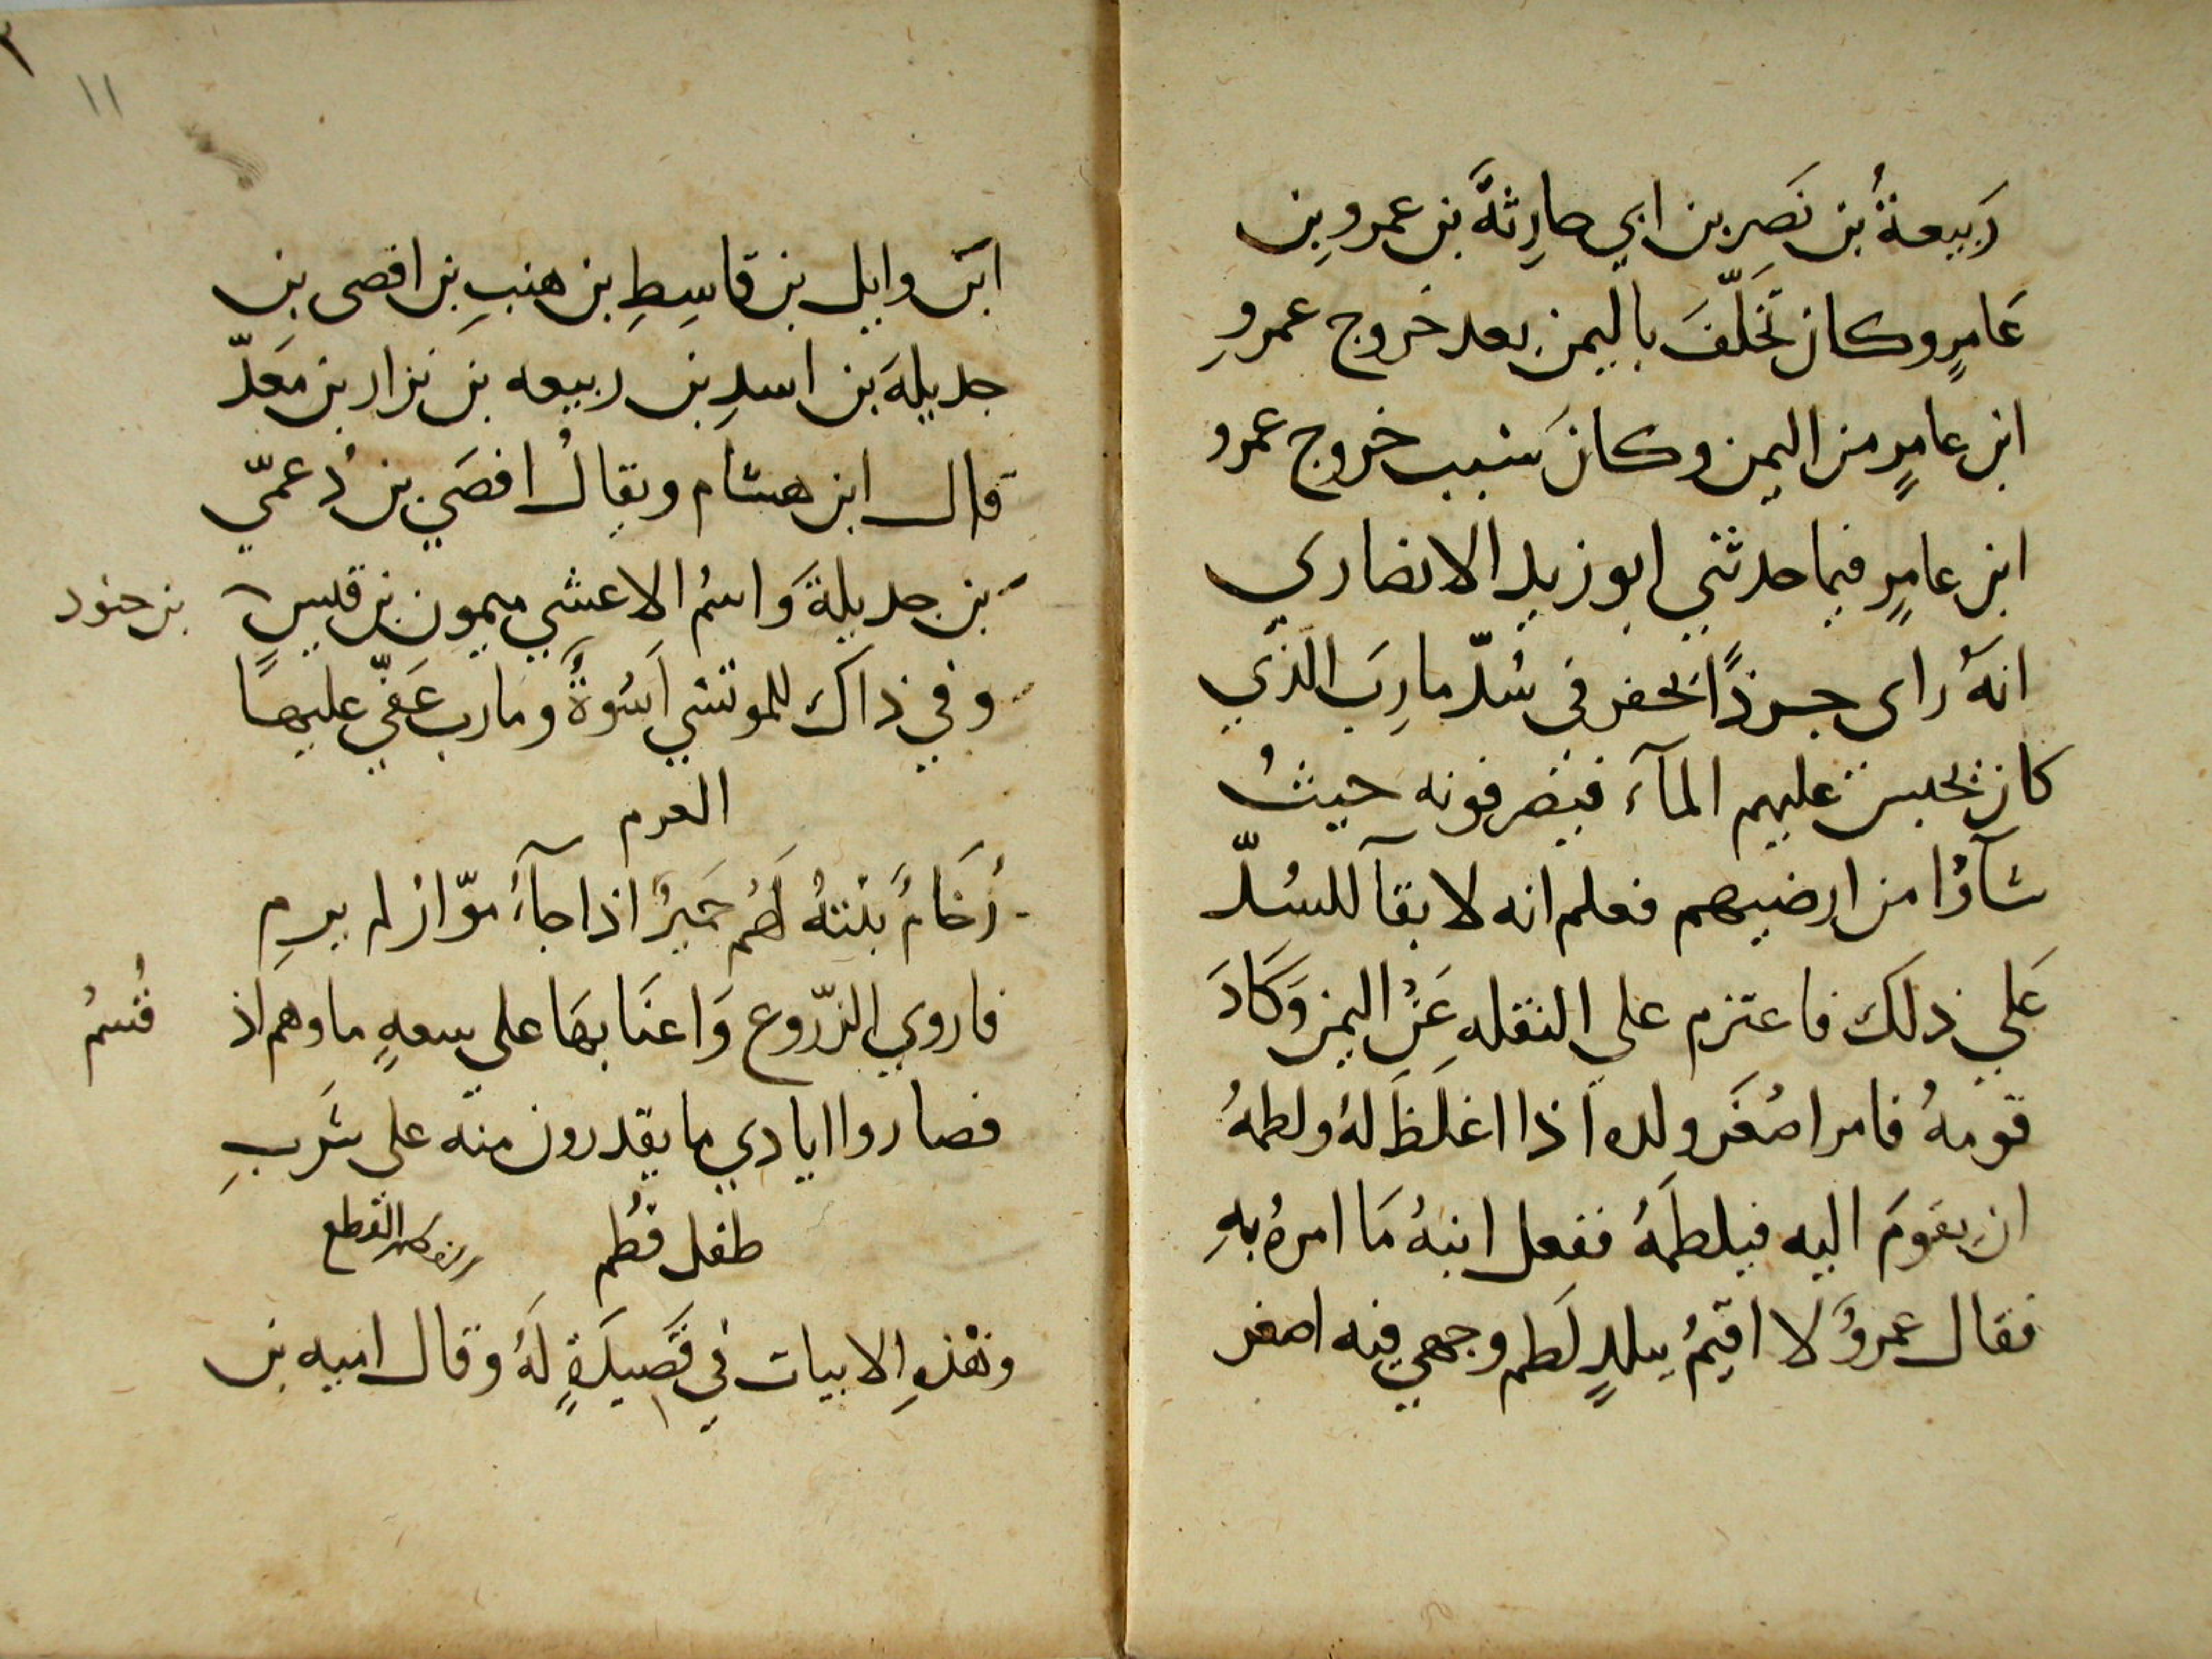 رَبيعةُ بن نَصرِ بن ابي حارِثةَ بن عمروِ بن
عَامرٍ وكان تَخلّفَ باليمن بعد خروج عمروِ
ابن عامرٍ من اليمن وكانَ سَبب خروج عمرو
ابن عامرٍ فيما حدثني ابو زيد الانصاري
انهُ راى جرذًا يحفر في سُدّ مارِبَ الذي
كان يحبس عليهم المآء فيصرفونه حيثُ
شآوُا من ارضيهم فعلم انه لا بقآ للسُدّ
عَلي ذلكَ فاعتزم على النقلهِ عَنِ اليمن وَكَادَ
قومهُ فامر اصْغَر ولده اذا اغلَظَ لهُ ولطمهُ
ان يقومَ اليه فيلطمَهُ ففعل ابنهُ مَا امرهُ بهِ
فقال عمروٌ لا اقيمُ ببلدٍ لَطم وجهي فيه اصغر
١١
ابن وايل بن قاسِطِ بن هنبِ بن افصى بن
جديلةَ بن اسدِ بن ربيعه بن نزار بن مَعَدّ
قال ابن هشام ويقالُ افصَي بن دُعميّ
بن جديلةَ وَاسمُ الاعشي ميمون بن قيسٍ
بن جنود
وفي ذاكَ للموتسي اَسُوةٌ ومارب عَفّي عليها
العرم
رُخَامٌ بنَتهُ لَهُم حميرٌ اذا جآءَ موّاره لم يرمِ
فاروي الزّروع وَاعنَابهَا على سعهٍ ماوهم اذ
قُسمُ
فصاروا ايادي ما يقدرون منه على شَربِ
طفل فُطم
وهذهِ الابيات في قَصيدَةٍ لَهُ وقال اميه بن